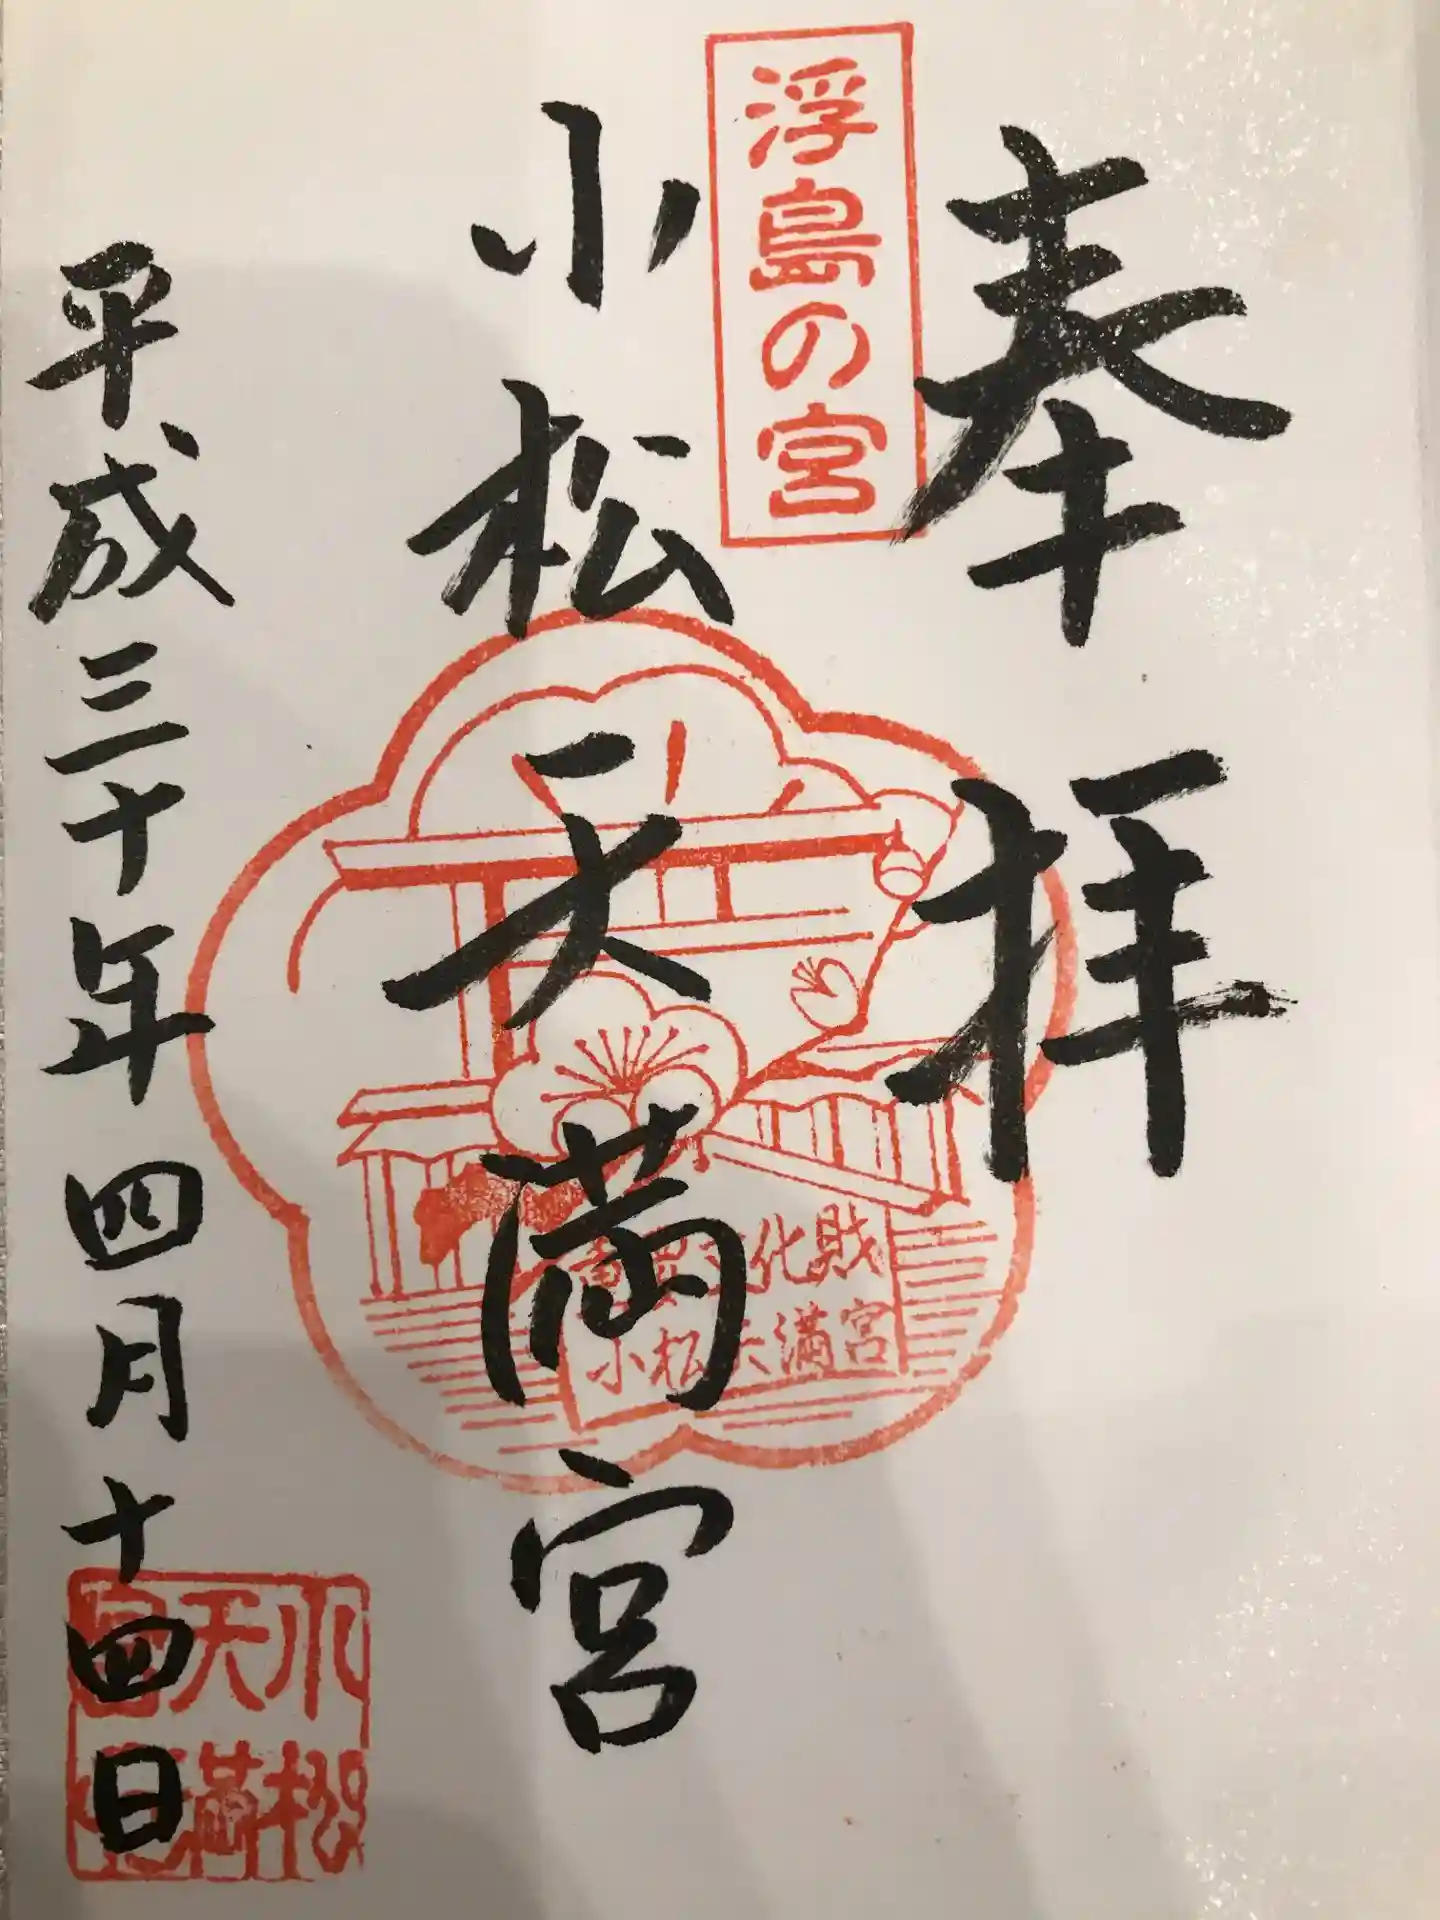 奉拝
浮島の宮
小松天満宮
重要文化財
小松天満宮
平成三十年四月十四日
小松
天満
宮